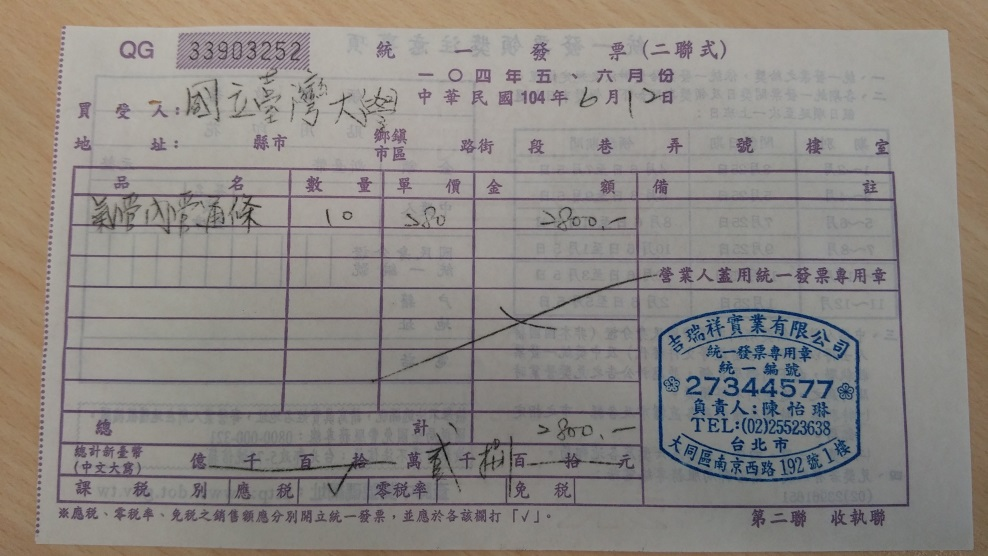 QG 33903252 統一發票(二聯式)
一〇四年五、六月份
中華民國104年6月12日
買受人:國立臺灣大學
地址: 縣市 鄉鎮市區 路街 段 巷 弄 號 樓 室
品名 數量 單價 金額 備註
氣管內管通條 10 280 2800.-
營業人蓋用統一發票專用章
吉瑞祥實業有限公司
統一發票專用章
統一編號
27344577
負責人:陳怡琳
TEL:(02)25523638
台北市
大同區南京西路192號1樓
總計 2800.-
總計新臺幣(中文大寫) 億 千 百 拾 萬 貳 千 捌 百 拾 元
課稅別 應稅 ✓ 零稅率 免稅
※應稅、零稅率、免稅之銷售額應分別開立統一發票,並應於各該欄打「✓」。
第二聯 收執聯